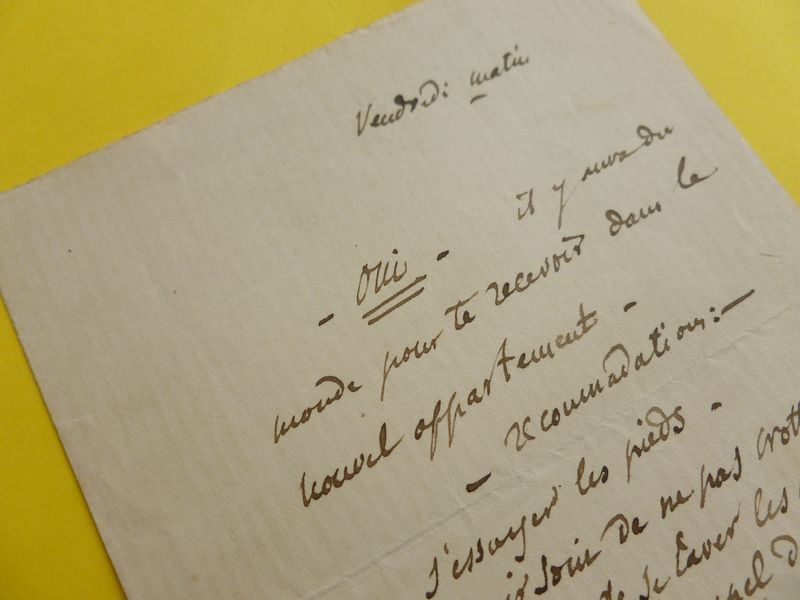 Vendredi matin
- Oui - il y aura du
monde pour te recevoir dans le
nouvel appartement -
- recommadations: -
s'essuyer les pieds -
soin de ne pas crott
de se laver les